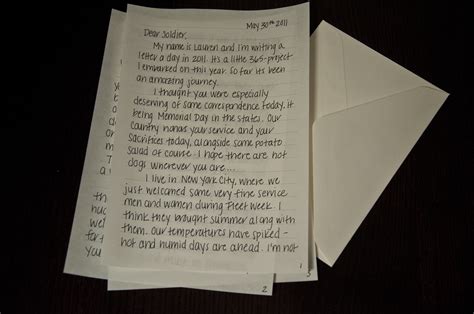 May 30th 2011
Dear Soldier,
My name is Lauren and I'm writing a
letter a day in 2011. It's a little 365-project
I embarked on this year. So far its been
an amazing journey.
I thought you were especially
deserving of some correspondence today, it
being Memorial Day in the states. Our
country honors your service and your
sacrifices today, alongside some potato
salad of course. I hope there are hot
dogs wherever you are....
I live in New York City, where we
just welcomed some very fine service
men and women during Fleet Week. I
think they brought summer along with
them. Our temperatures have spiked -
hot and humid days are ahead. I'm not
1
3
2